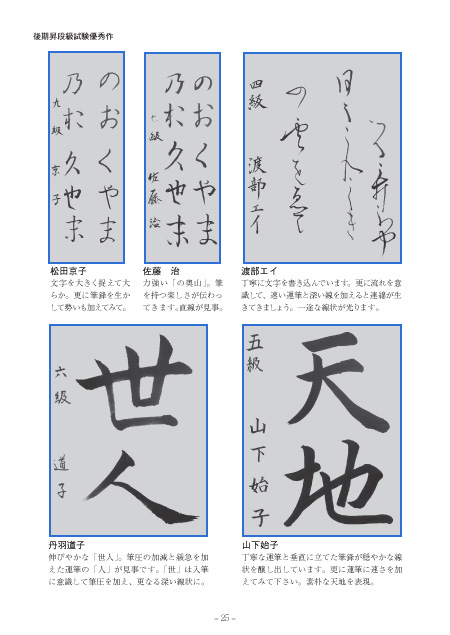 後期昇段級試験優秀作
のおくやま
乃於久也末
九級 京子
のおくやま
乃於久也末
七級 佐藤治
四級 渡部エイ
松田京子
文字を大きく捉えて大
らか。更に筆鋒を生か
して勢いも加えてみて。
佐藤　治
力強い「の奥山」。筆
を持つ楽しさが伝わっ
てきます。直線が見事。
渡部エイ
丁寧に文字を書き込んでいます。更に流れを意
識して、速い運筆と深い線を加えると連綿が生
きてきましょう。一途な線状が光ります。
世人
六級 道子
天地
五級 山下始子
丹羽道子
伸びやかな「世人」。筆圧の加減と緩急を加
えた運筆の「人」が見事です。「世」は入筆
に意識して筆圧を加え、更なる深い線状に。
山下始子
丁寧な運筆と垂直に立てた筆鋒が穏やかな線
状を醸し出しています。更に運筆に速さを加
えてみて下さい。素朴な天地を表現。
- 25 -